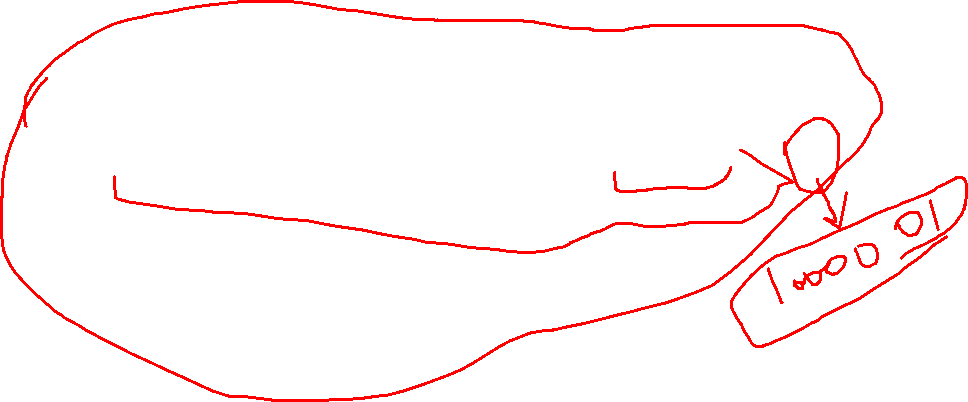 10000 01